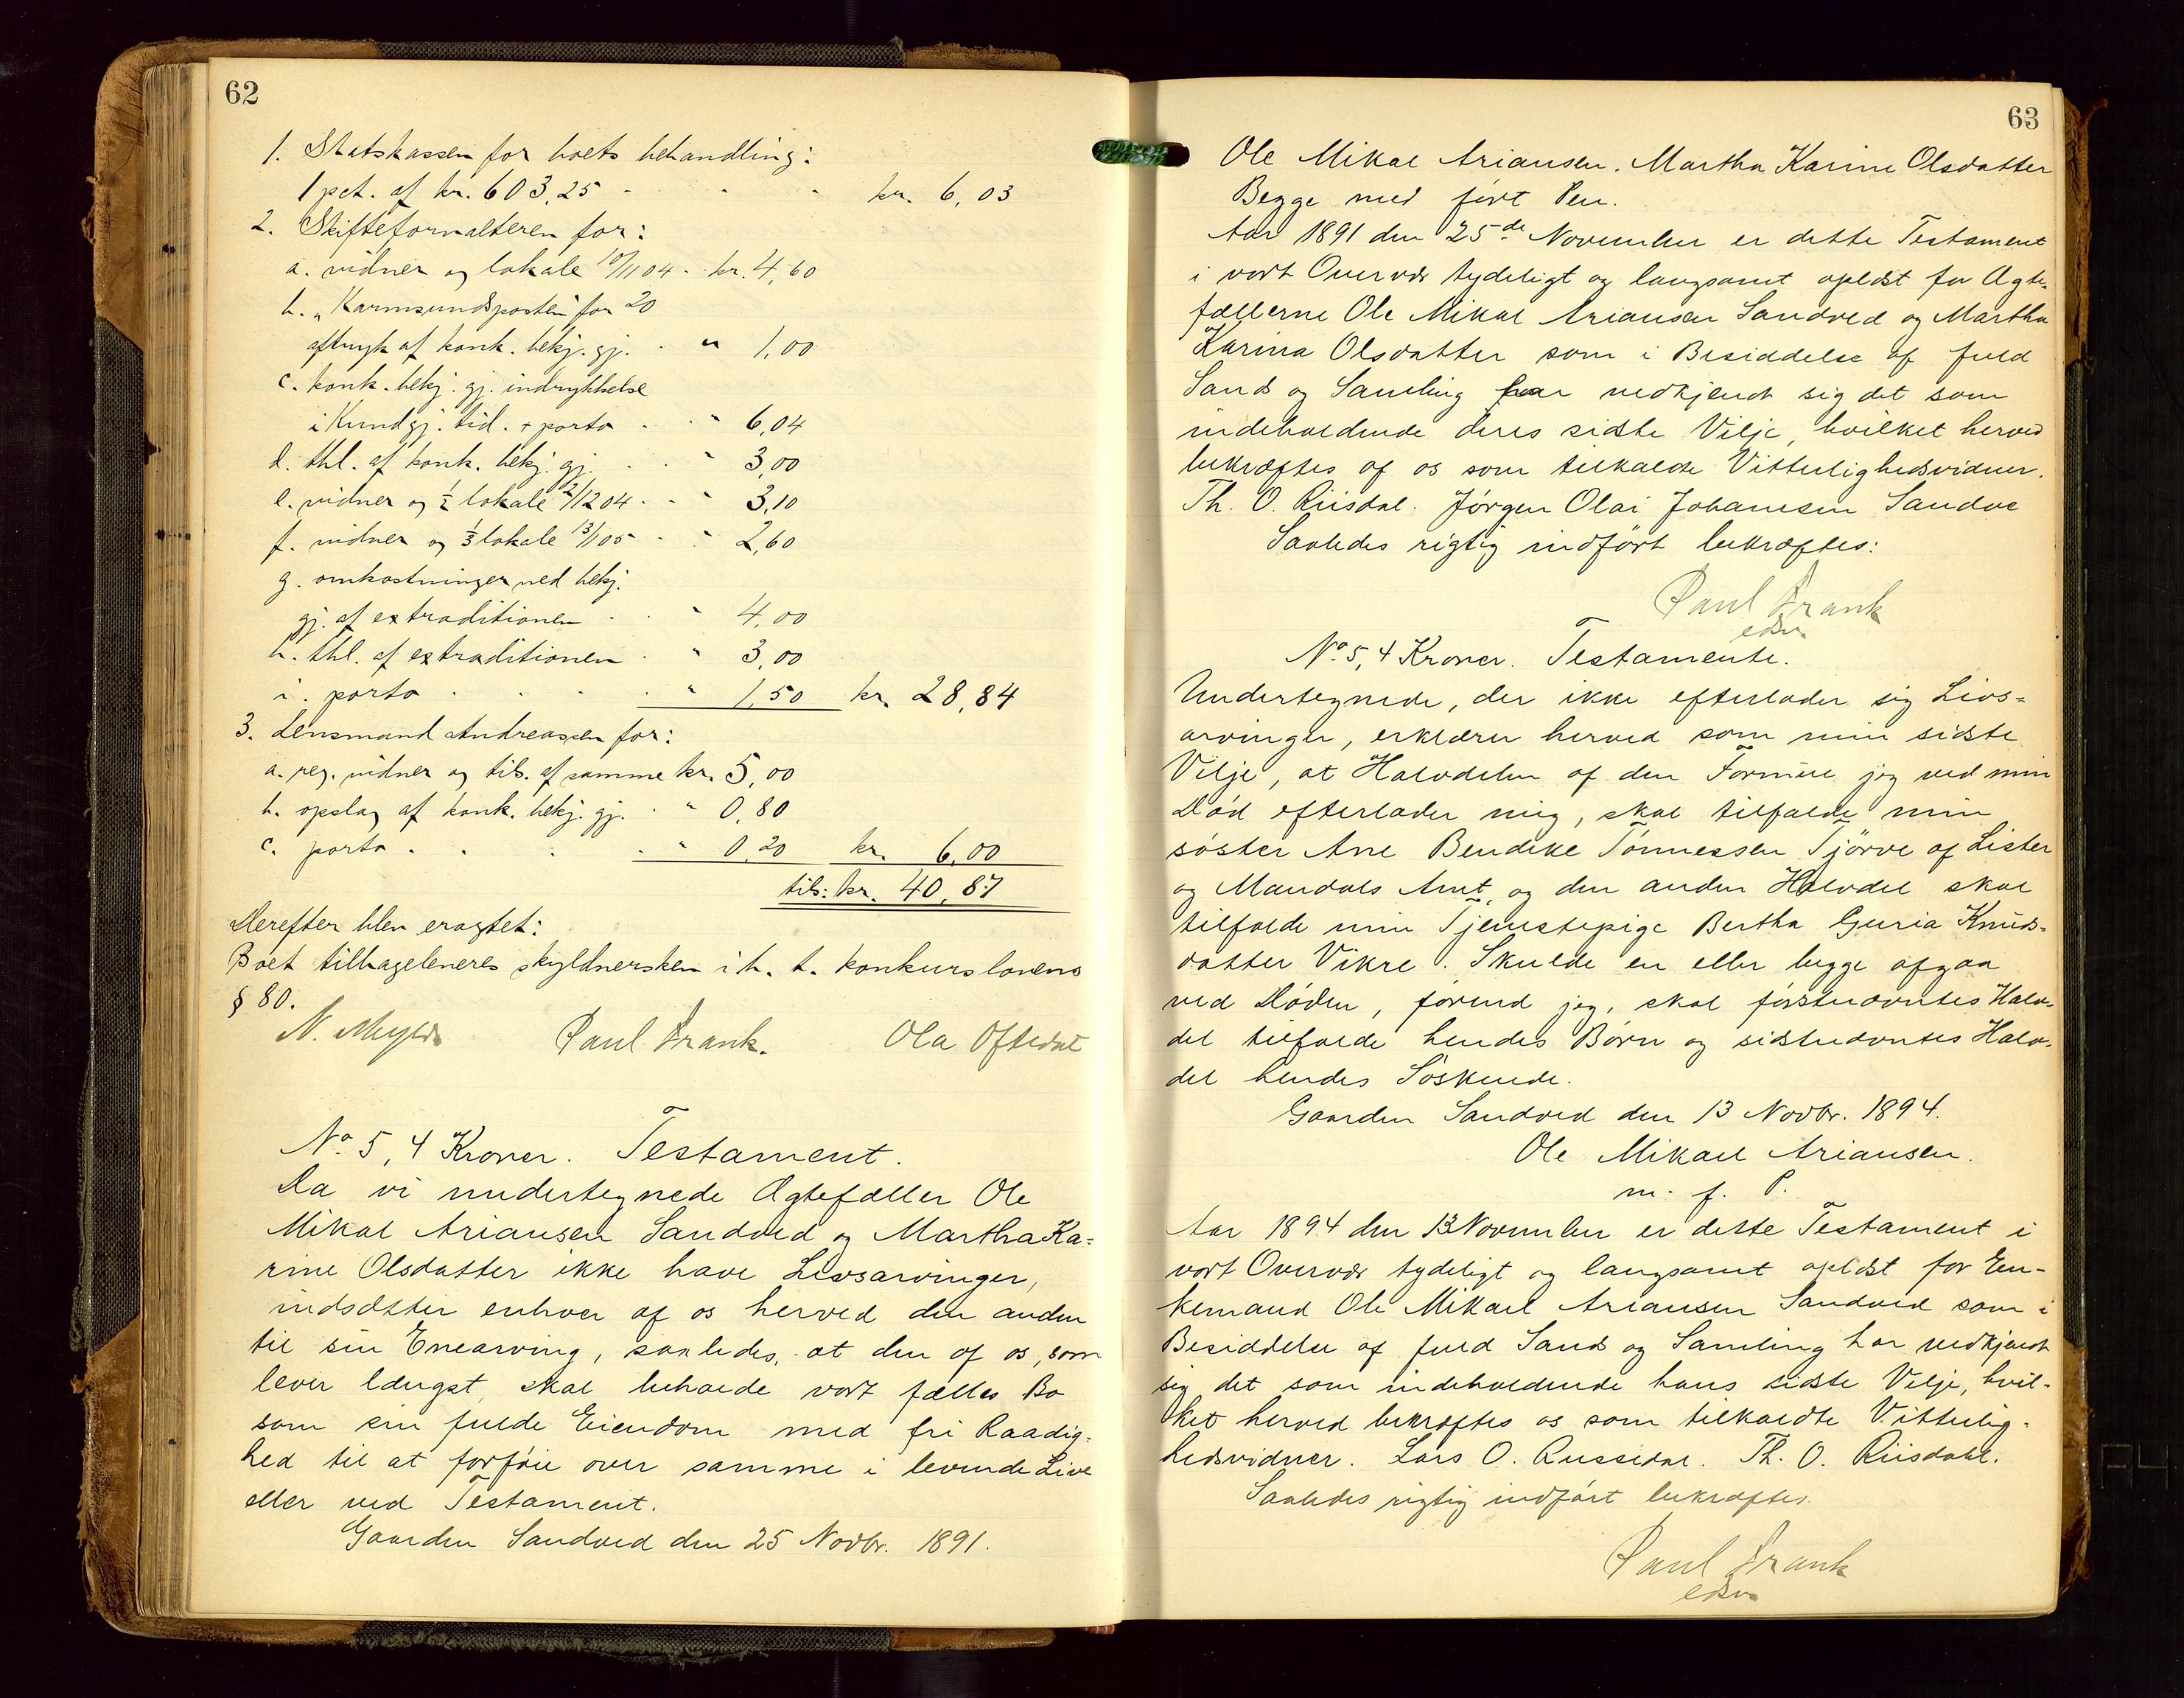 62
1. Statskassen for boets behandling:
1 pct. af kr. 603,25 - - - kr. 6,03
2. Skifteforvalteren for:
a. vidner og lokale 10/11 04 - kr. 4,60
b. „Karmsundsposten" for 20
aftryk af konk. bekj. gj. - " 1,00
c. konk. bekj. gj. indrykkelse
i Kundgj. tid. + porto - " 6,04
d. thl. af konk. bekj. gj. - " 3,00
e. vidner og ½ lokale 2/12 04 - " 3,10
f. vidner og ⅓ lokale 13/1 05 - " 2,60
g. omkostninger ved bekj.
gj. af extraditionen - " 4,00
h. thl. af extraditionen - " 3,00
i. porto - - - " 1,50 kr. 28,84
3. Lensmand Andreassen for:
a. reg. vidner og tils. af samme kr. 5,00
b. opslag af konk. bekj. gj. - " 0,80
c. porto - - - " 0,20 kr. 6,00
tils: kr. 40,87
Derefter blev eragtet:
Boet tilbageleveres skyldnersken i h. t. konkurslovens
§ 80.
N. Meyer Paul Frank. Ola Oftedal
No. 5, 4 Kroner. Testament.
Da vi undertegnede Ægtefæller Ole
Mikal Ariansen Sandved og Martha Ka-
rine Olsdatter ikke have Livsarvinger,
indsætter enhver af os herved den anden
til sin Enearving, saaledes, at den af os, som
lever længst, skal beholde vort fælles Bo
som sin fulde Eiendom med fri Raadig-
hed til at forføie over samme i levende Live
eller ved Testament.
Gaarden Sandved den 25 Novbr. 1891.
63
Ole Mikal Ariansen. Martha Karine Olsdatter
Begge med ført Pen.
Aar 1891 den 25de November er dette Testament
i vort Overvær tydeligt og langsomt oplæst for Ægte-
fællerne Ole Mikal Ariansen Sandved og Martha
Karina Olsdatter som i Besiddelse af fuld
Sands og Samling har vedkjendt sig det som
indeholdende deres sidste Vilje, hvilket herved
bekræftes af os som tilkaldte Vitterlighedsvidner.
Th. O. Riisdal. Jørgen Olai Johannesen Sandve
Saaledes rigtig indført bekræftes:
Paul Frank
edsv.
No. 5, 4 Kroner. Testamente.
Undertegnede, der ikke efterlader sig Livs-
arvinger, erklærer herved som min sidste
Vilje, at Halvdelen af den Formue jeg ved min
Død efterlader mig, skal tilfalde min
søster Ane Bendike Tønnessen Tjørve af Lister
og Mandals Amt, og den anden Halvdel skal
tilfalde min Tjenestepige Bertha Guria Knuds-
datter Vikre. Skulde en eller begge afgaa
ved Døden, førend jeg, skal førstnævntes Halv-
del tilfalde hendes Børn og sidstnævntes Halv-
del hendes Søskende.
Gaarden Sandved den 13 Novbr. 1894.
Ole Mikael Ariansen.
m. f. P.
Aar 1894 den 13 November er dette Testament i
vort Overvær tydeligt og langsomt oplæst for En-
kemand Ole Mikael Ariansen Sandved som i
Besiddelse af fuld Sands og Samling har vedkjendt
sig det som indeholdende hans sidste Vilje, hvil-
ket herved bekræftes os som tilkaldte Vitterlig-
hedsvidner. Lars O. Russedal. Th. O. Riisdahl.
Saaledes rigtig indført bekræftes.
Paul Frank
edsv.